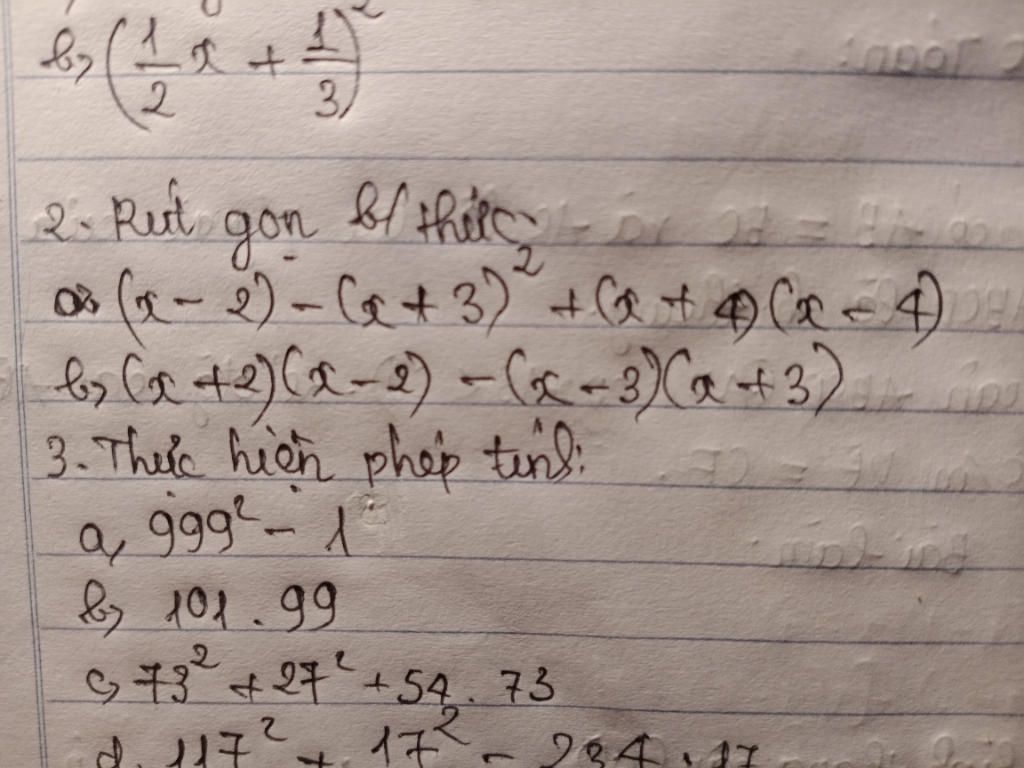 b, (1/2 x + 1/3)²
2. Rút gọn b/thức:
a, (x - 2) - (x + 3)² + (x + 4)(x - 4)
b, (x + 2)(x - 2) - (x - 3)(x + 3)
3. Thực hiện phép tính:
a, 999² - 1
b, 101 . 99
c, 73² + 27² + 54 . 73
d. 117² + 17² - 234 . 17